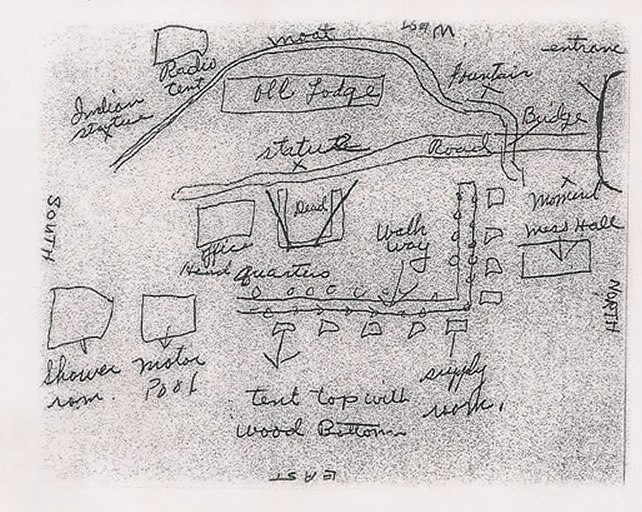 West
moat
entrance
Radio
tent
Fountain
Indian
stature
Oll Lodge
Bridge
stature
Road
Dead
Moment
Mess Hall
Walk
way
Office
Head quarters
SOUTH
NORTH
Shower
room.
motor
Pool
supply
room.
tent top with
Wood Bottom
EAST